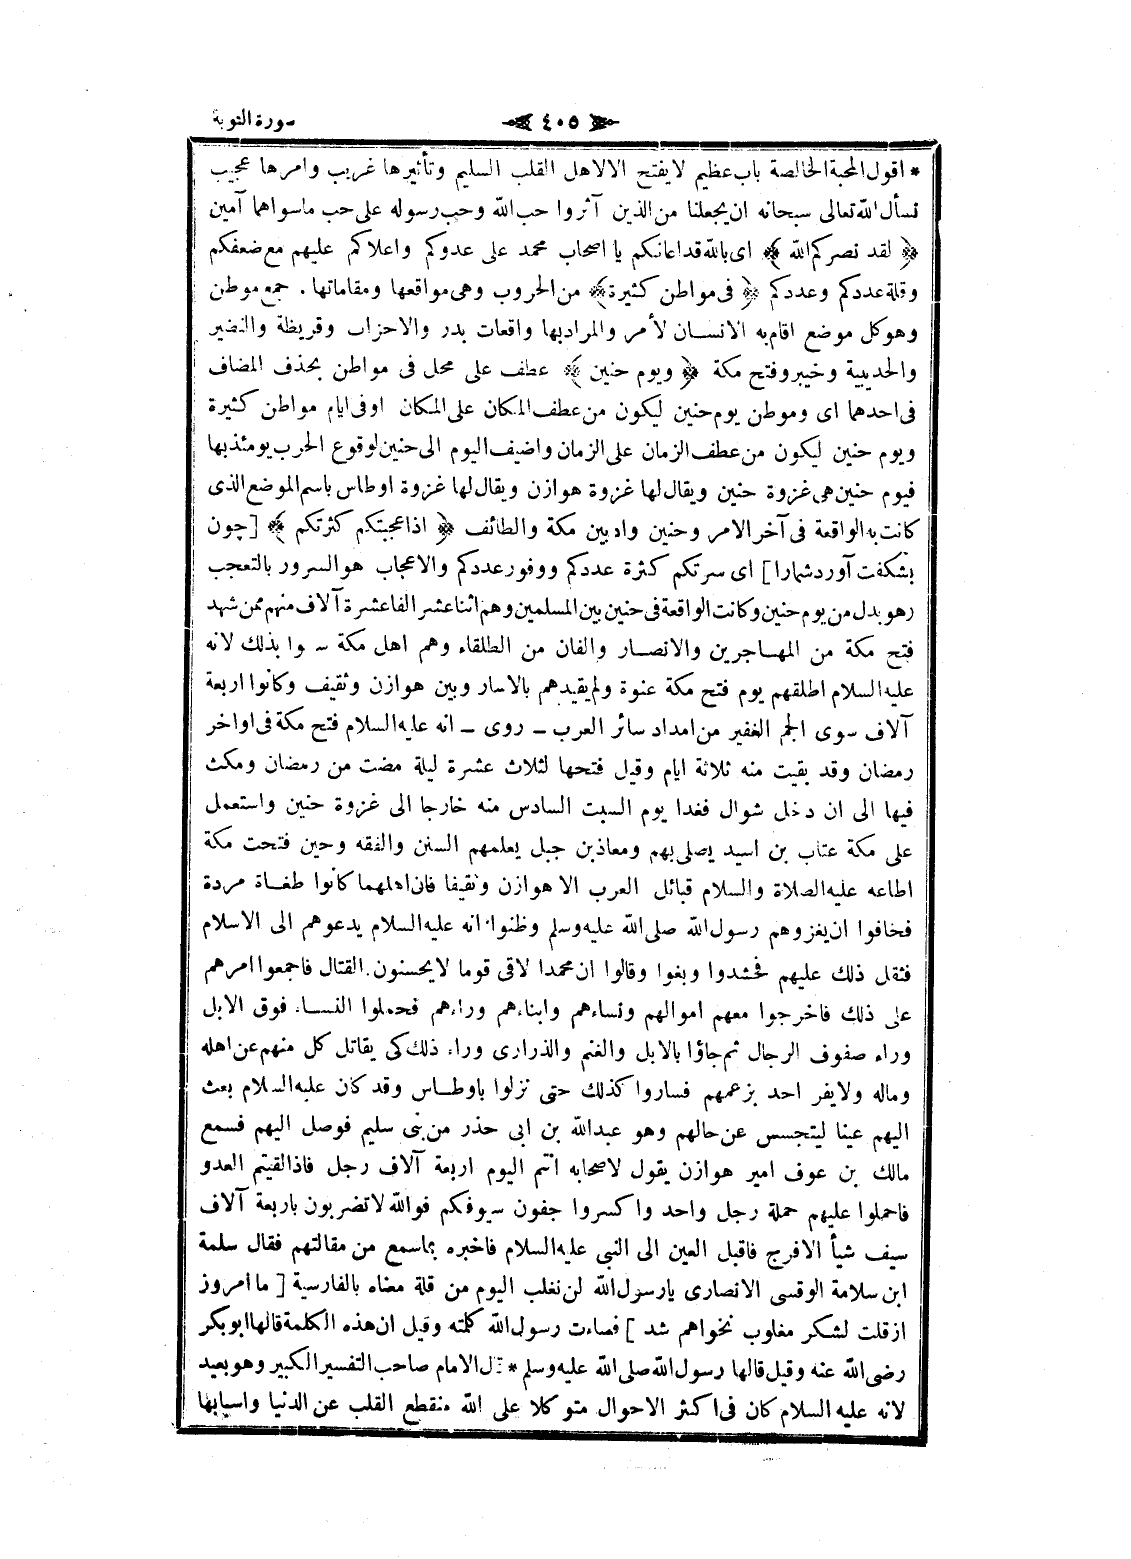 سورة التوبة ﴿ ٤٠٥ ﴾
* اقول المحبة الخالصة باب عظيم لا يفتح الا لاهل القلب السليم وتأثيرها غريب وامرها عجيب
نسأل الله تعالى سبحانه ان يجعلنا من الذين آثروا حب الله وحب رسوله على حب ما سواهما آمين
﴿ لقد نصركم الله ﴾ اى بالله قد اعانكم يا اصحاب محمد على عدوكم واعلاكم عليهم مع ضعفكم
وقلة عددكم وعددكم ﴿ فى مواطن كثيرة ﴾ من الحروب وهى مواقعها ومقاماتها . جمع موطن
وهو كل موضع اقام به الانسان لأمر والمراد بها واقعات بدر والاحزاب وقريظة والنضير
والحديبية وخيبر وفتح مكة ﴿ ويوم حنين ﴾ عطف على محل فى مواطن بحذف المضاف
فى احدهما اى وموطن يوم حنين ليكون من عطف المكان على المكان او فى ايام مواطن كثيرة
ويوم حنين ليكون من عطف الزمان على الزمان واضيف اليوم الى حنين لوقوع الحرب يومئذ بها
فيوم حنين هى غزوة حنين ويقال لها غزوة هوازن ويقال لها غزوة اوطاس باسم الموضع الذى
كانت به الواقعة فى آخر الامر وحنين واد بين مكة والطائف ﴿ اذ اعجبتكم كثرتكم ﴾ [ چون
بشكفت آورد شمارا ] اى سرتكم كثرة عددكم ووفور عددكم والاعجاب هو السرور بالتعجب
وهو بدل من يوم حنين وكانت الواقعة فى حنين بين المسلمين وهم اثنا عشر الفا عشرة آلاف منهم ممن شهد
فتح مكة من المهاجرين والانصار والفان من الطلقاء وهم اهل مكة سموا بذلك لانه
عليه السلام اطلقهم يوم فتح مكة عنوة ولم يقيدهم بالاسار وبين هوازن وثقيف وكانوا اربعة
آلاف سوى الجم الغفير من امداد سائر العرب ـ روى ـ انه عليه السلام فتح مكة فى اواخر
رمضان وقد بقيت منه ثلاثة ايام وقيل فتحها لثلاث عشرة ليلة مضت من رمضان ومكث
فيها الى ان دخل شوال فغدا يوم السبت السادس منه خارجا الى غزوة حنين واستعمل
على مكة عتاب بن اسيد يصلى بهم ومعاذ بن جبل يعلمهم السنن والفقه وحين فتحت مكة
اطاعه عليه الصلاة والسلام قبائل العرب الا هوازن وثقيفا فان اهلهما كانوا طغاة مردة
فخافوا ان يغزوهم رسول الله صلى الله عليه وسلم وظنوا انه عليه السلام يدعوهم الى الاسلام
فثقل ذلك عليهم فحشدوا وبغوا وقالوا ان محمدا لاقى قوما لا يحسنون القتال فاجمعوا امرهم
على ذلك فاخرجوا معهم اموالهم ونساءهم وابناءهم وراءهم فحملوا النساء فوق الابل
وراء صفوف الرجال ثم جاؤا بالابل والغنم والذرارى وراء ذلك كى يقاتل كل منهم عن اهله
وماله ولا يفر احد بزعمهم فساروا كذلك حتى نزلوا باوطاس وقد كان عليه السلام بعث
اليهم عينا ليتجسس عن حالهم وهو عبدالله بن ابى حذر من بنى سليم فوصل اليهم فسمع
مالك بن عوف امير هوازن يقول لاصحابه انتم اليوم اربعة آلاف رجل فاذا لقيتم العدو
فاحملوا عليهم حملة رجل واحد واكسروا جفون سيوفكم فوالله لا تضربون باربعة آلاف
سيف شيأ الا فرج فاقبل العين الى النبى عليه السلام فاخبره بما سمع من مقالتهم فقال سلمة
ابن سلامة الوقسى الانصارى يا رسول الله لن نغلب اليوم من قلة معناه بالفارسية [ ما امروز
از قلت لشكر مغلوب نخواهم شد ] فساءت رسول الله كلمته وقيل ان هذه الكلمة قالها ابوبكر
رضى الله عنه وقيل قالها رسول الله صلى الله عليه وسلم * قال الامام صاحب التفسير الكبير وهو بعيد
لانه عليه السلام كان فى اكثر الاحوال متوكلا على الله منقطع القلب عن الدنيا واسبابها